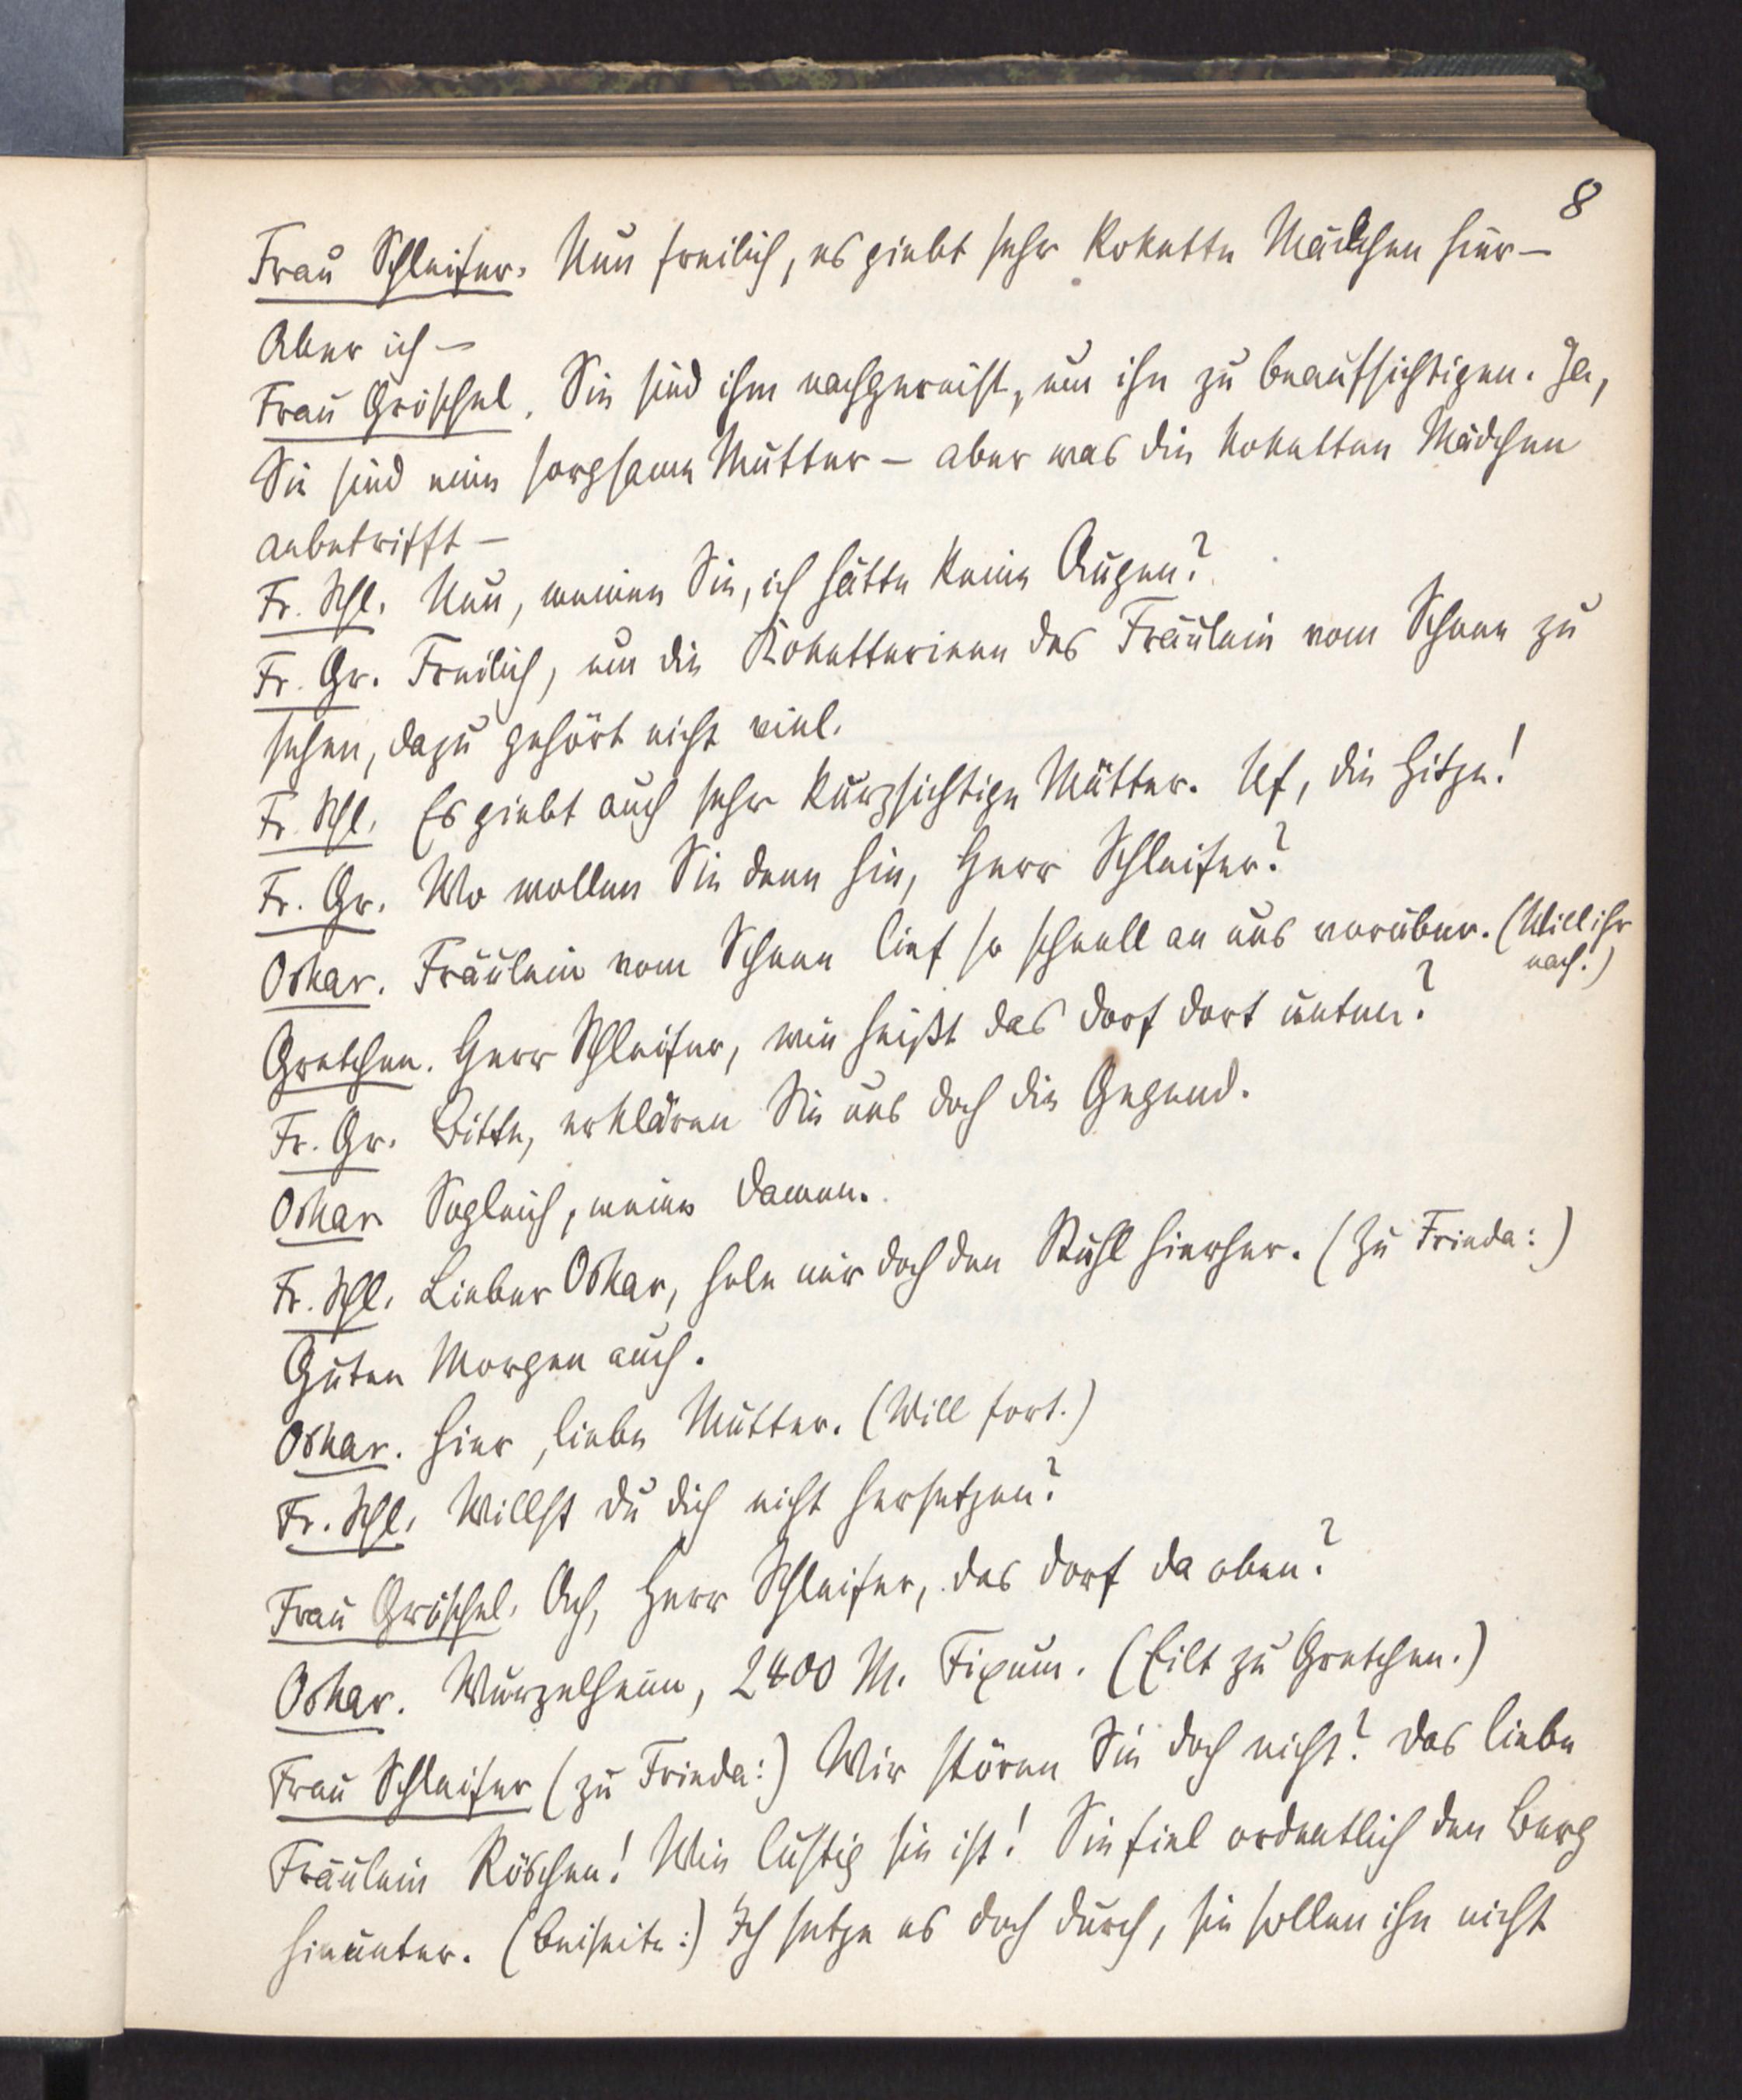 8
Frau Schleifer. Nun freilich, es giebt sehr kokette Mädchen hier –
Aber ich –
Frau Gröschel. Sie sind ihm nachgereist, um ihn zu beaufsichtigen. Ja,
Sie sind eine sorgsame Mutter – aber was die koketten Mädchen
anbetrifft –
Fr. Schl. Nun, meinen Sie, ich hätte keine Augen?
Fr. Gr. Freilich, um die Koketterieen des Fräulein vom Scheen zu
sehen, dazu gehört nicht viel.
Fr. Schl. Es giebt auch sehr kurzsichtige Mütter. Uf, die Hitze!
Fr. Gr. Wo wollen Sie denn hin, Herr Schleifer?
Oskar. Fräulein vom Scheen lief so schnell an uns vorüber. (Will ihr
nach.)
Gretchen. Herr Schleifer, wie heißt das Dorf dort unten?
Fr. Gr. Bitte, erklären Sie uns doch die Gegend.
Oskar Sogleich, meine Damen.
Fr. Schl. Lieber Oskar, hole mir doch den Stuhl hierher. (Zu Frieda:)
Guten Morgen auch.
Oskar. Hier, liebe Mutter. (Will fort.)
Fr. Schl. Willst du dich nicht hersetzen?
Frau Gröschel. Ach, Herr Schleifer, das Dorf da oben?
Oskar. Wurzelheim, 2400 M. Fixum. (Eilt zu Gretchen.)
Frau Schleifer (zu Frieda:) Wir stören Sie doch nicht? Das liebe
Fräulein Röschen! Wie lustig sie ist! Sie fiel ordentlich den Berg
hinunter. (beiseite:) Ich setze es doch durch, sie sollen ihn nicht